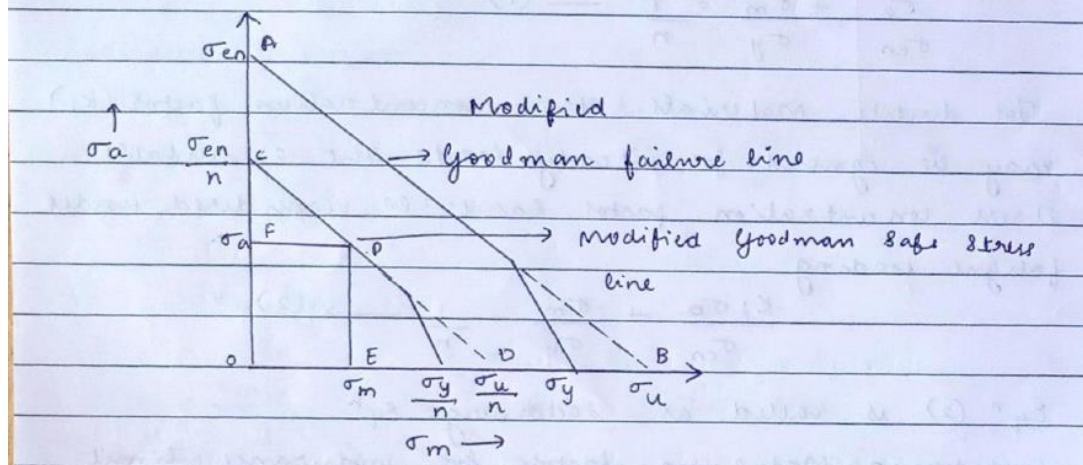 σen A
Modified
σa ↑
σen/n C → Goodman failure line
σa F P → Modified Goodman Safe Stress
line
O E D B
σm σy/n σu/n σy σu
σm →